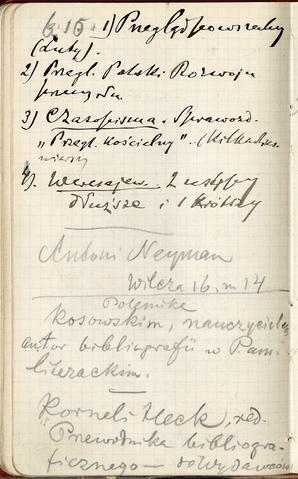 6.15 1) Przegląd powszechny
(Luty).
2) Przegl. Polski Rozwoju
przemysłu.
3) Czasopisma. Sprawozd.
„Przegl. Kościelny". (Kilkadzies.
wierszy
4). Weresajew. 2 ustępy
dłuższe i 1 krótszy
Antoni Neyman
Wilcza 16, m 14
Polemika
Kosowskim, nauczyciel
autor bibliografii w Pam.
literackim.
Korneli Heck, red.
Przewodnika bibliogra-
ficznego — do wydawców